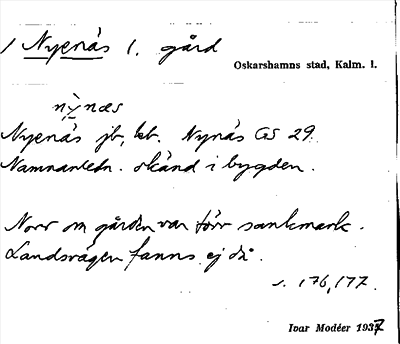 1 Nyenäs 1. gård
Oskarshamns stad, Kalm. l.
nỳnæs
Nyenäs jb, kb. Nynäs GS 29
Namnanledn. okänd i bygden.
Norr om gården var förr sankmark.
Landsvägen fanns ej då.
s. 176, 177.
Ivar Modéer 1937